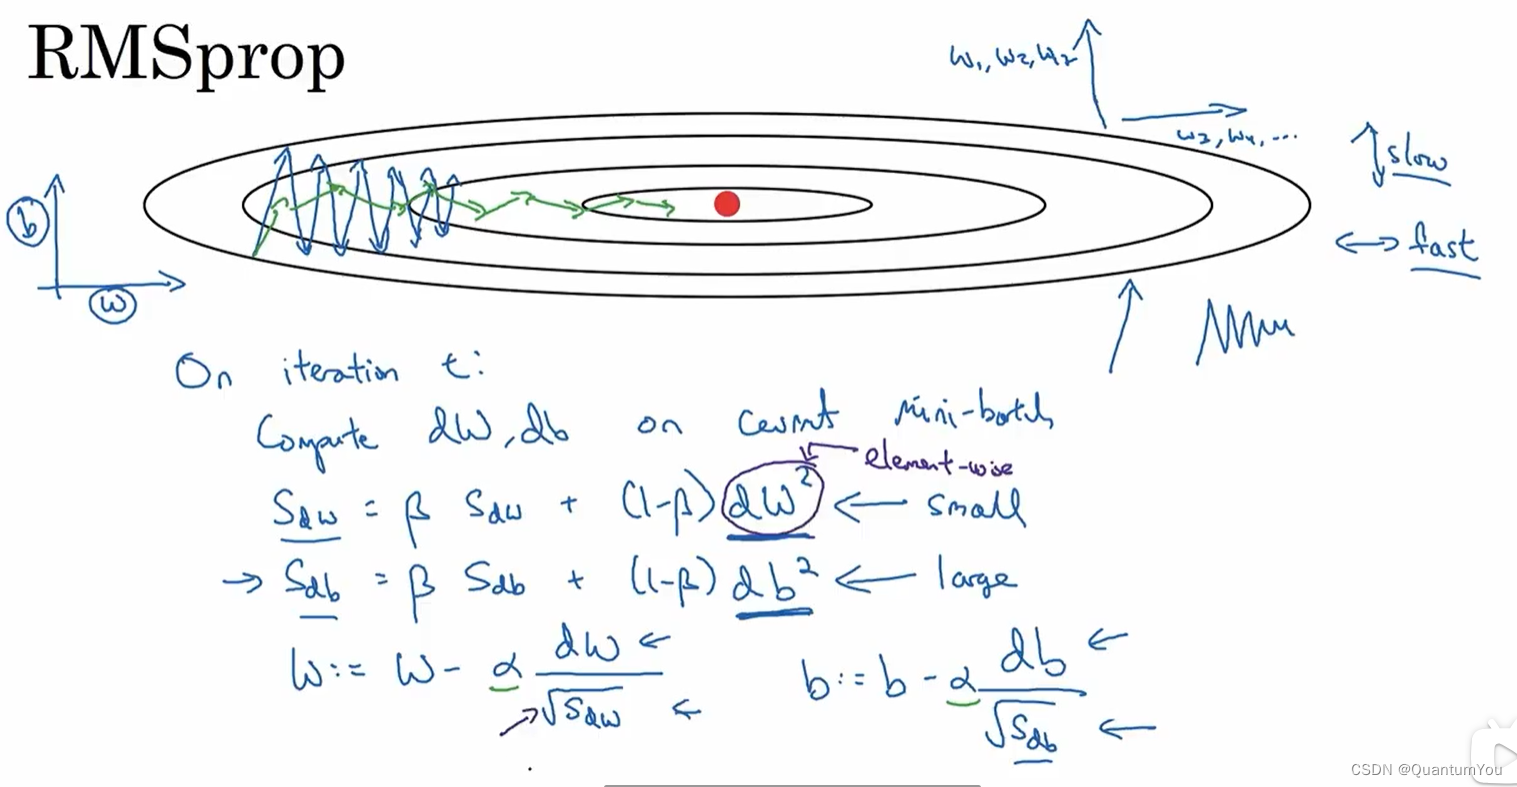 RMSprop
w₁, w₂, w₂
w₃, w₄, ...
slow
b
fast
w
On iteration t:
Compute dW, db on current mini-batch
element-wise
Sdw = β Sdw + (1-β) dW² ← small
→ Sdb = β Sdb + (1-β) db² ← large
W := W - α dW / √Sdw ← b := b - α db / √Sdb ←
CSDN @QuantumYou